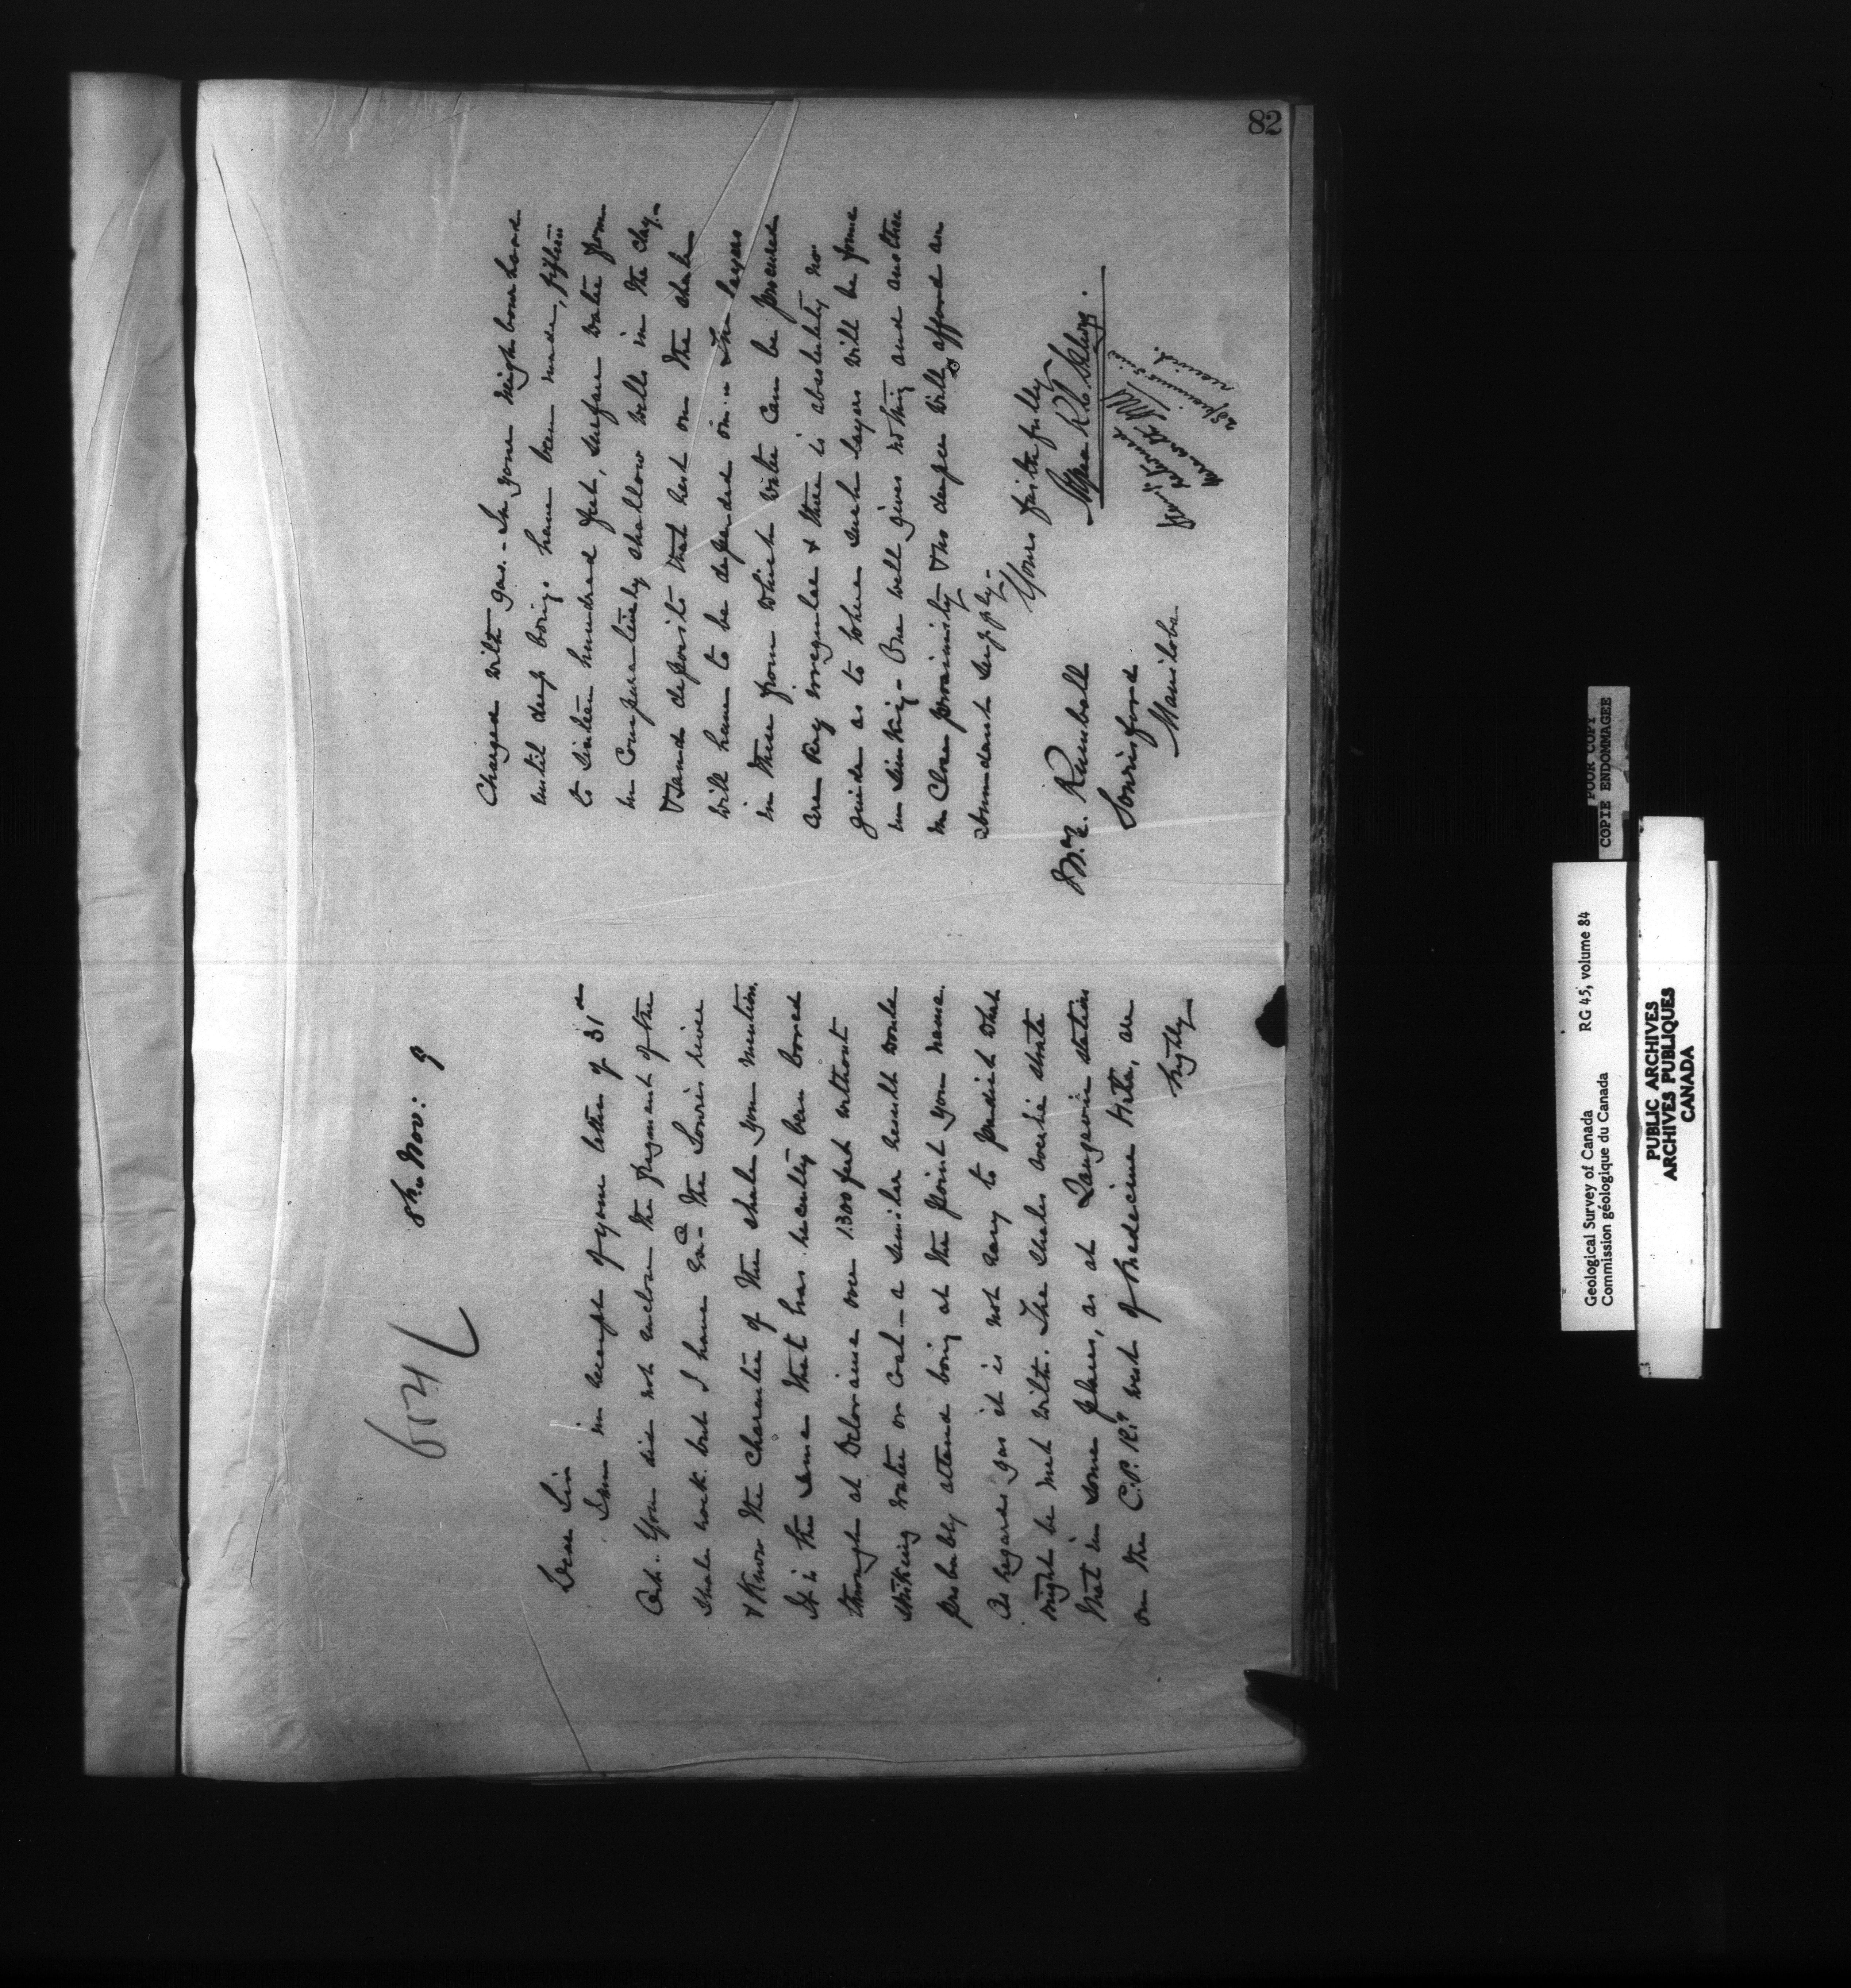 654 L
8th. Nov: 9
Dear Sir
I am in receipt of your letter of 31st
Oct. You did not enclose the fragment of the
shale rock. but I have on the Souris river
& know the character of the shale you mention.
It is the same that has recently been bored
through at Deloraine over 1300 feet without
striking water or coal – a similar result would
probably attend boring at the point you name.
As regards gas it is not easy to predict what
might be met with. The shales overlie strata
that in some places, as at Langevin station
on the C.P.Ry. west of Medecine Hat, are
highly
82
Charged with gas. – In your neighbourhood
until deep borings have been made, fifteen
to sixteen hundred feet, surface water from
in comparatively shallow wells in the clay –
& sand deposits that rest on the shale
will have to be depended on. – The layers
in these from which water can be procured
are very irregular & there is absolutely no
guide as to where such layers will be found
in sinking – One well gives nothing and another
in close proximity & no deeper will afford an
abundant supply –
Yours faithfully
Alfred R. C. Selwyn.
Sourisford
Manitoba
received.
POOR COPY
COPIE ENDOMMAGEE
Geological Survey of Canada RG 45, volume 84
Commission géologique du Canada
PUBLIC ARCHIVES
ARCHIVES PUBLIQUES
CANADA